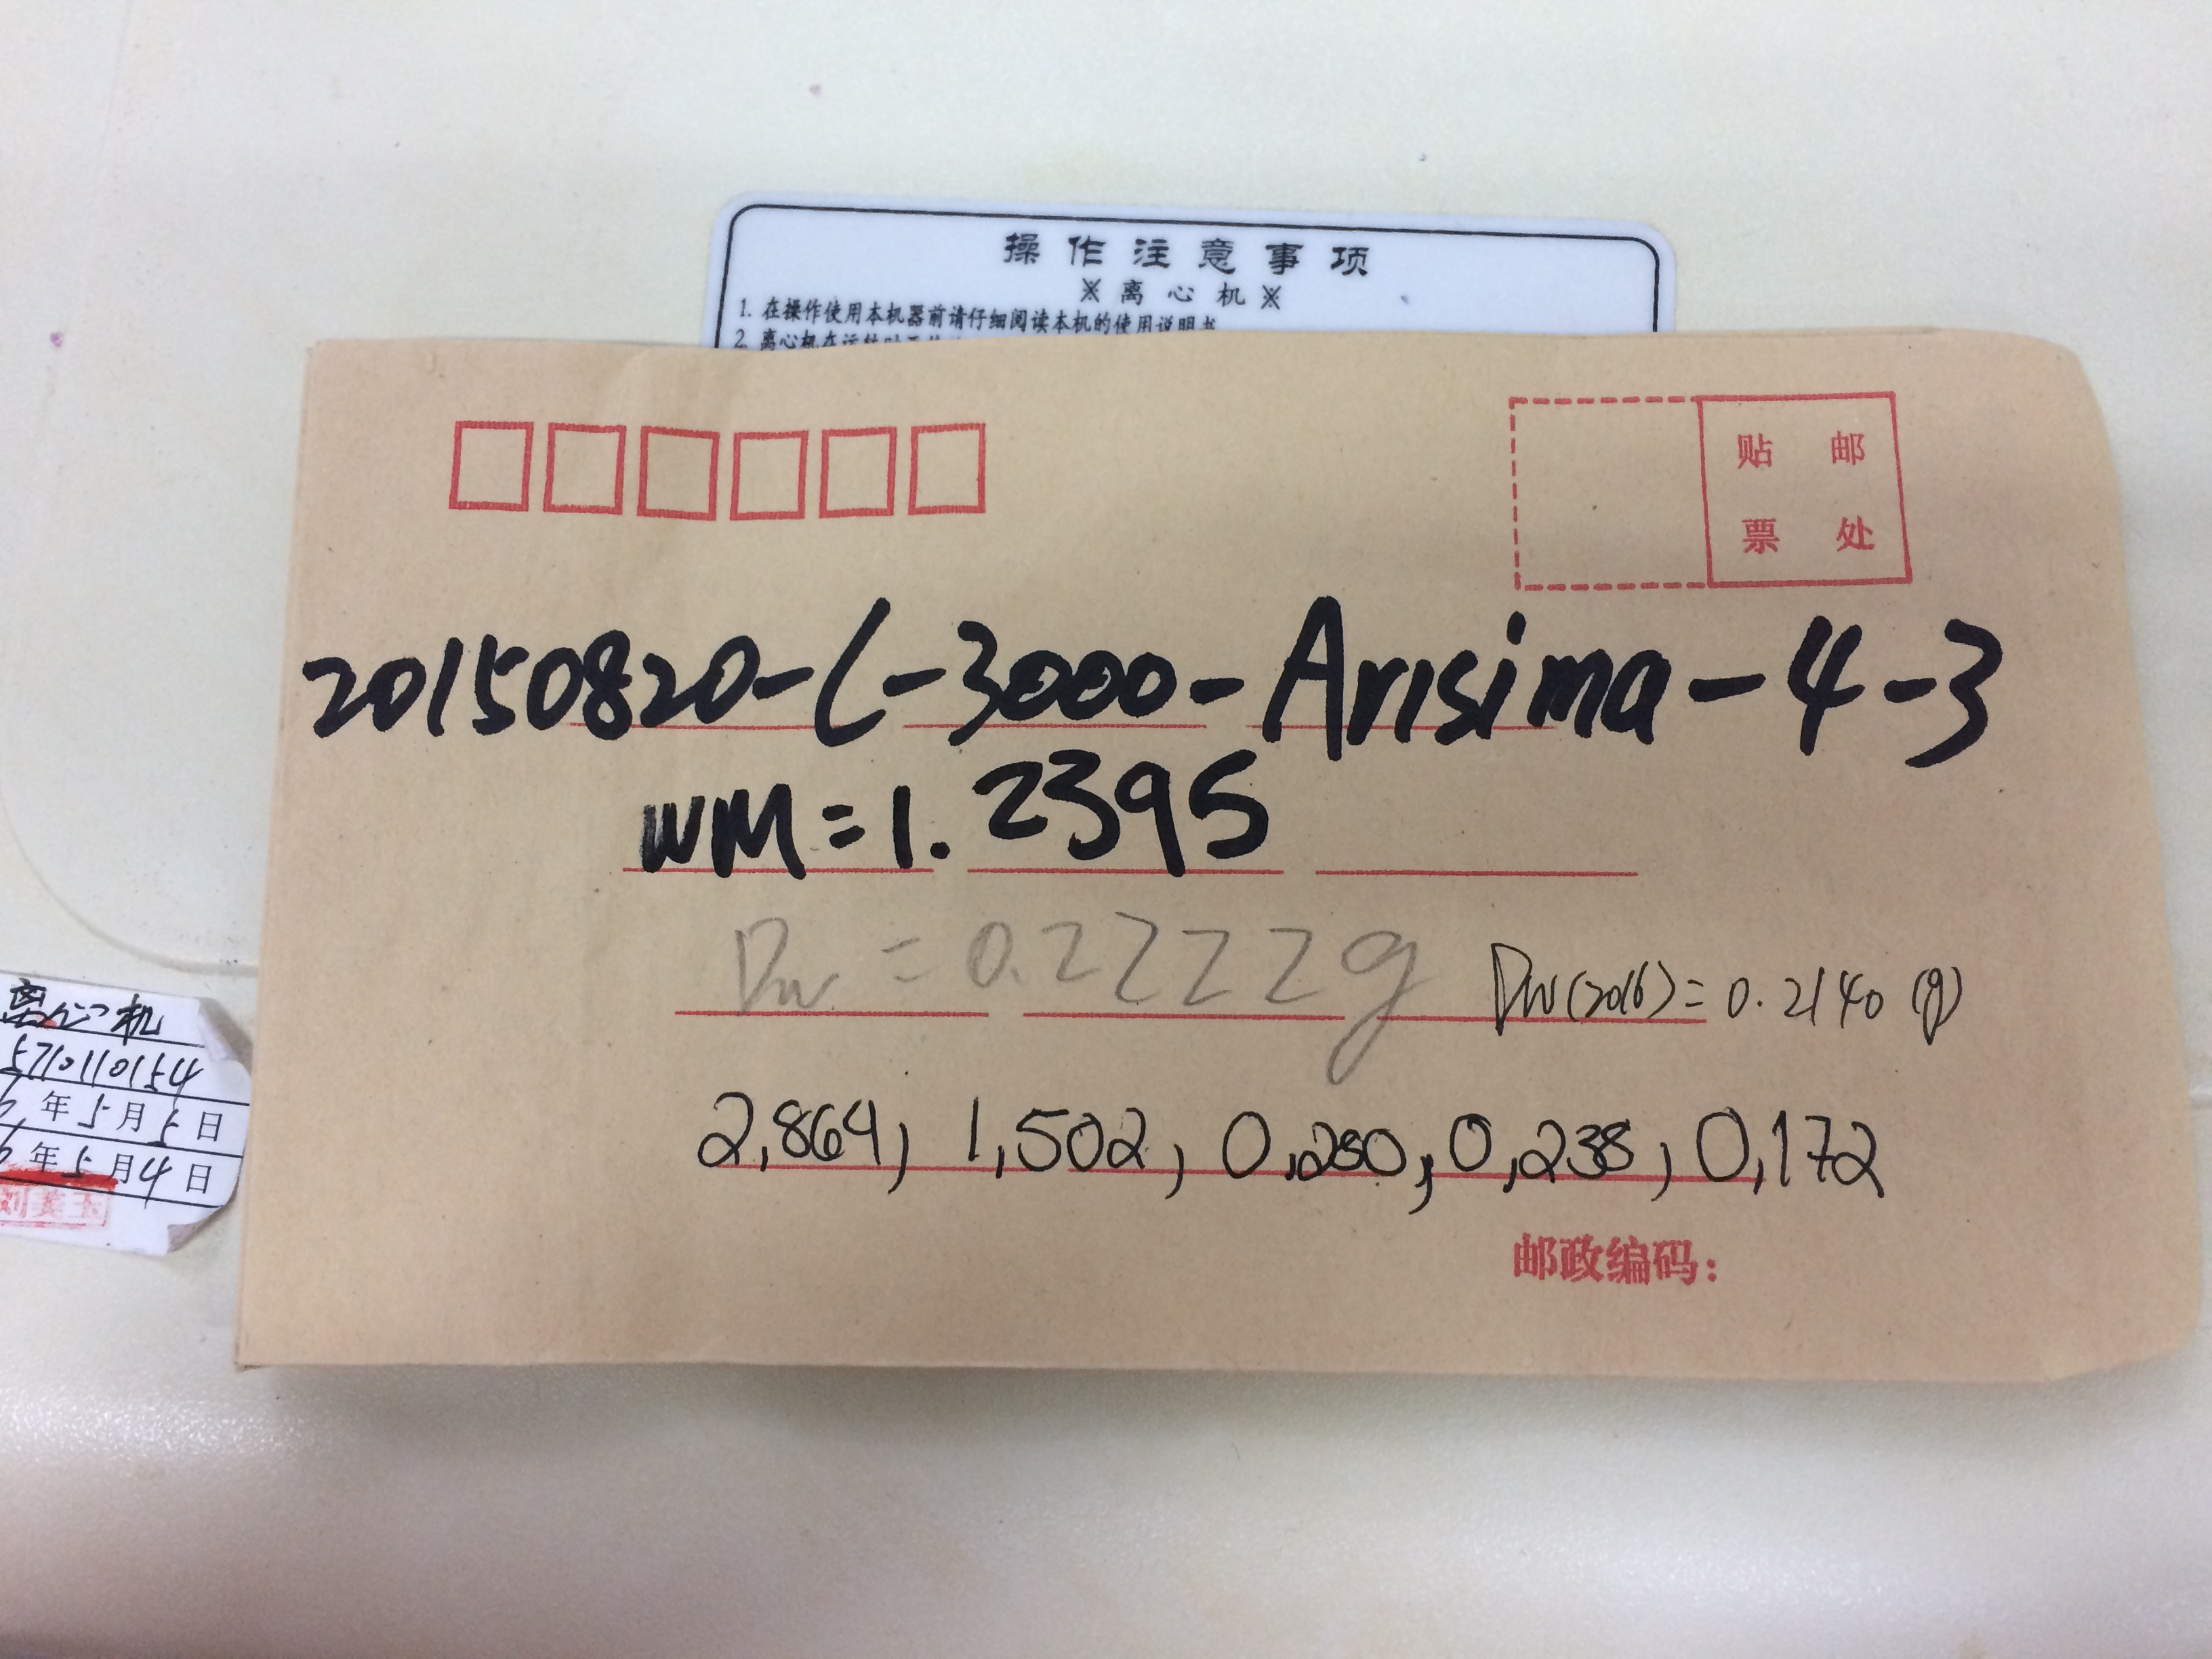 操作注意事项
※离心机※
1. 在操作使用本机器前请仔细阅读本机的使用说明书
2. 离心机在运转时
贴邮
票处
20150820-C-3000-Arisima-4-3
WM=1.2395
DW=0.2222g
DW(2016)=0.2140 (g)
2,864, 1,502, 0,280, 0,238, 0,172
邮政编码:
离心机
5710110154
年5月5日
6年5月4日